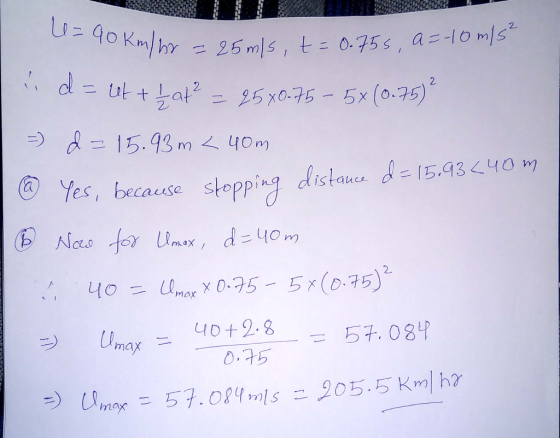 U = 90 Km/hr = 25 m/s, t = 0.75 s, a = -10 m/s²
∴ d = ut + 1/2 at² = 25×0.75 - 5×(0.75)²
⇒ d = 15.93 m < 40 m
(a) Yes, because stopping distance d = 15.93 < 40 m
(b) Now for Umax, d = 40 m
∴ 40 = Umax × 0.75 - 5×(0.75)²
⇒ Umax = (40+2.8)/0.75 = 57.084
⇒ Umax = 57.084 m/s = 205.5 Km/hr